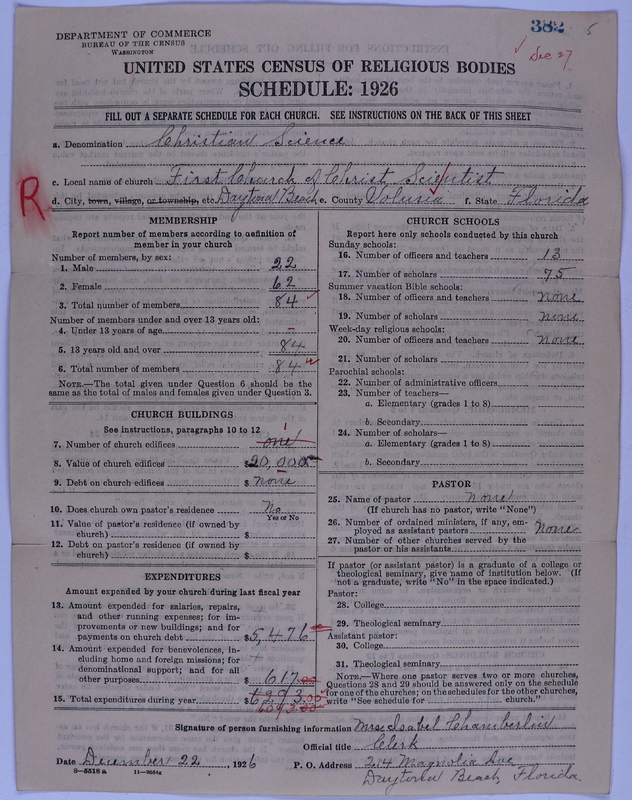 382
5
DEPARTMENT OF COMMERCE
BUREAU OF THE CENSUS
WASHINGTON
Dec 27
UNITED STATES CENSUS OF RELIGIOUS BODIES
SCHEDULE: 1926
FILL OUT A SEPARATE SCHEDULE FOR EACH CHURCH. SEE INSTRUCTIONS ON THE BACK OF THIS SHEET
a. Denomination Christian Science
c. Local name of church First Church of Christ Scientist
R.
d. City, town, village, or township, etc. Daytona Beach e. County Volusia f. State Florida
MEMBERSHIP
Report number of members according to definition of
member in your church
Number of members, by sex:
1. Male 22
2. Female 62
3. Total number of members 84
Number of members under and over 13 years old:
4. Under 13 years of age –
5. 13 years old and over 84
6. Total number of members 84
NOTE.—The total given under Question 6 should be the
same as the total of males and females given under Question 3.
CHURCH BUILDINGS
See instructions, paragraphs 10 to 12
1
7. Number of church edifices one
8. Value of church edifices $20,000
9. Debt on church edifices $ none
10. Does church own pastor's residence No
Yes or No
11. Value of pastor's residence (if owned by
church) $
12. Debt on pastor's residence (if owned by
church) $
EXPENDITURES
Amount expended by your church during last fiscal year
13. Amount expended for salaries, repairs,
and other running expenses; for im-
provements or new buildings; and for
payments on church debt $5,476
14. Amount expended for benevolences, in-
cluding home and foreign missions; for
denominational support; and for all
other purposes $ 617.00
15. Total expenditures during year $ 6293.00
6093.00
CHURCH SCHOOLS
Report here only schools conducted by this church
Sunday schools:
16. Number of officers and teachers 13
17. Number of scholars 75
Summer vacation Bible schools:
18. Number of officers and teachers none
19. Number of scholars none
Week-day religious schools:
20. Number of officers and teachers none
21. Number of scholars
Parochial schools:
22. Number of administrative officers
23. Number of teachers—
a. Elementary (grades 1 to 8)
b. Secondary
24. Number of scholars—
a. Elementary (grades 1 to 8)
b. Secondary
PASTOR
25. Name of pastor none
(If church has no pastor, write "None")
26. Number of ordained ministers, if any, em-
ployed as assistant pastors none
27. Number of other churches served by the
pastor or his assistants
If pastor (or assistant pastor) is a graduate of a college or
theological seminary, give name of institution below. (If
not a graduate, write "No" in the space indicated.)
Pastor:
28. College
29. Theological seminary
Assistant pastor:
30. College
31. Theological seminary
NOTE.—Where one pastor serves two or more churches,
Questions 28 and 29 should be answered only on the schedule
for one of the churches; on the schedules for the other churches,
write "See schedule for church."
Signature of person furnishing information Mrs. Isabel Chamberlin
Official title Clerk
Date December 22, 1926 P. O. Address 214 Magnolia Ave
8—5518 a 11—9054g
Daytona Beach, Florida.